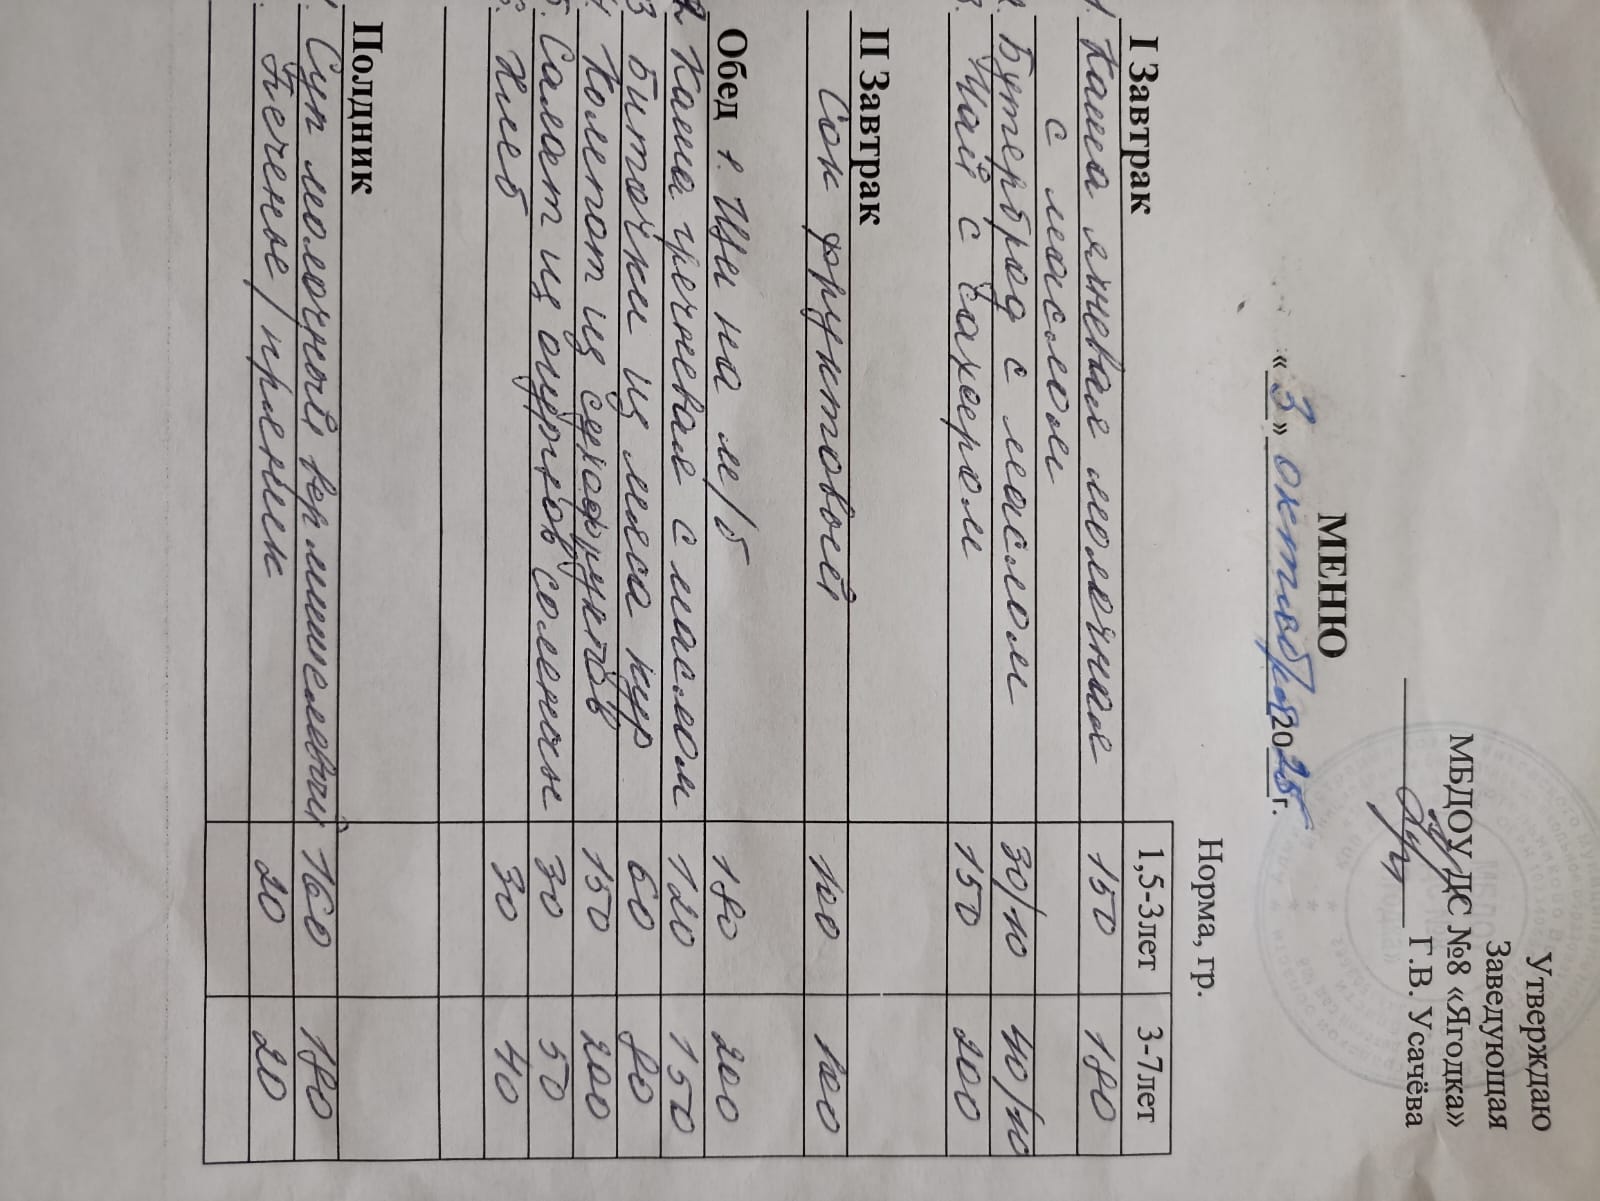 Утверждаю
Заведующая
МБДОУ ДС №8 «Ягодка»
Г.В. Усачёва
МЕНЮ
«3» октября 2025 г.
Норма, гр.
I Завтрак 1,5-3лет 3-7лет
1. Каша ячневая молочная 150 180
с маслом
2. Бутерброд с маслом 30/10 40/10
3. Чай с сахаром 150 200
II Завтрак
Сок фруктовый 100 100
Обед 1. Щи на м/б 180 200
2 Каша гречневая с маслом 120 150
3 Биточки из мяса кур 60 80
4. Компот из сухофруктов 150 200
5. Салат из огурцов солёных 30 50
6. Хлеб 30 40
Полдник
1. Суп молочный вермишелевый 160 180
Печенье/пряник 20 20